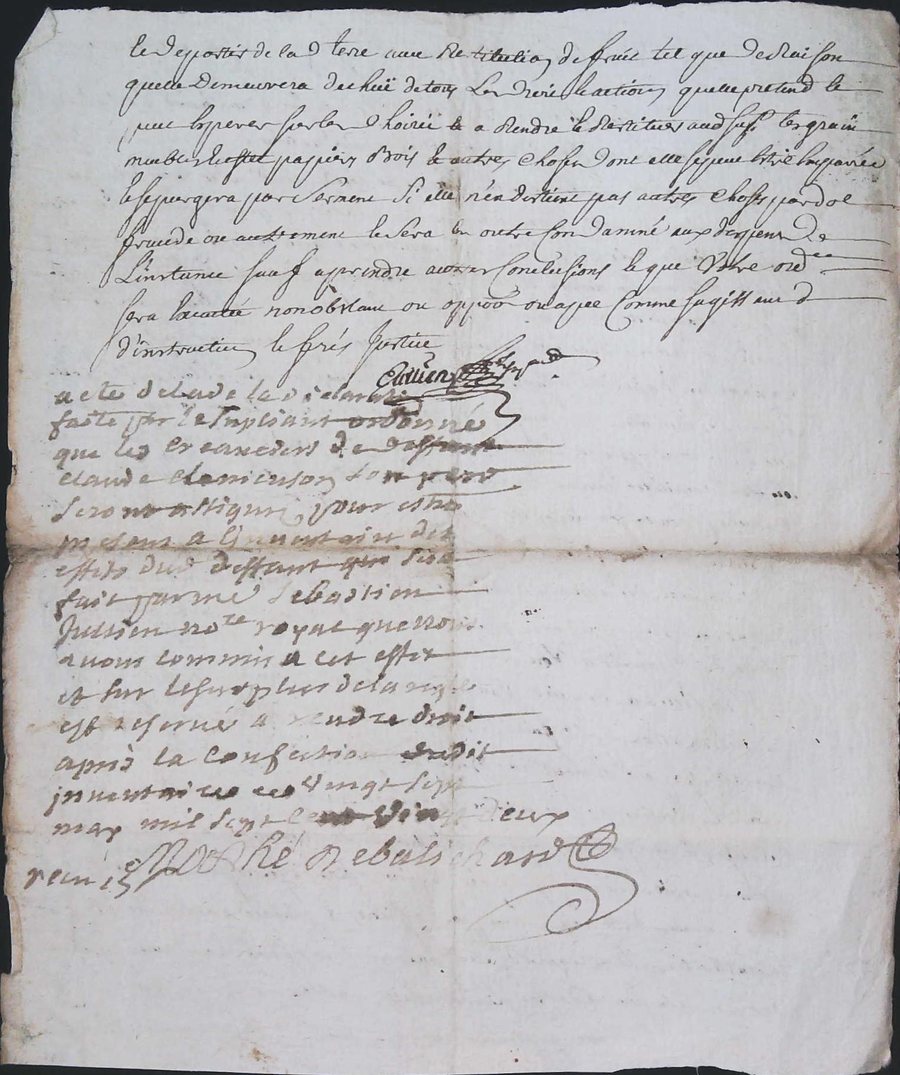 de la d terre avec Restitution de fruit tel que de Raison
quelle Demeurera dechüe de tous Les droit & actions quelle pretend &
peut Esperer sur les & a Rendre & Restituer aud supt les grain
meubles & effet papiers Bois & autres Choses dont elle sepeut
& sepurgera par Serment Si elle n'en Detient pas autres Choses par dol
fraude ou autrement & sera En outre Condamné aux despens De
L'instance sauf aprendre autres Conclusions & que Votre ordce
sera Executée nonobstant ou oppoõn ou apel Comme sagissant
d'instruction & ferés Justice
acte de la declarati
faite par le Supliant ordonné
que les Creanciers de deffunt
claude clemenson son pere
Seront assignes pour estre
a Linventaire des
effets dud deffunt qui sera
fait par me Sebastien
Jullien note royal que nous
avons commis a cet effet
et sur le surplus de la
est reservé a rendre droit
apres la Confection dudit
inventaire ce vingt sept
may mil sept cent Vingt deux